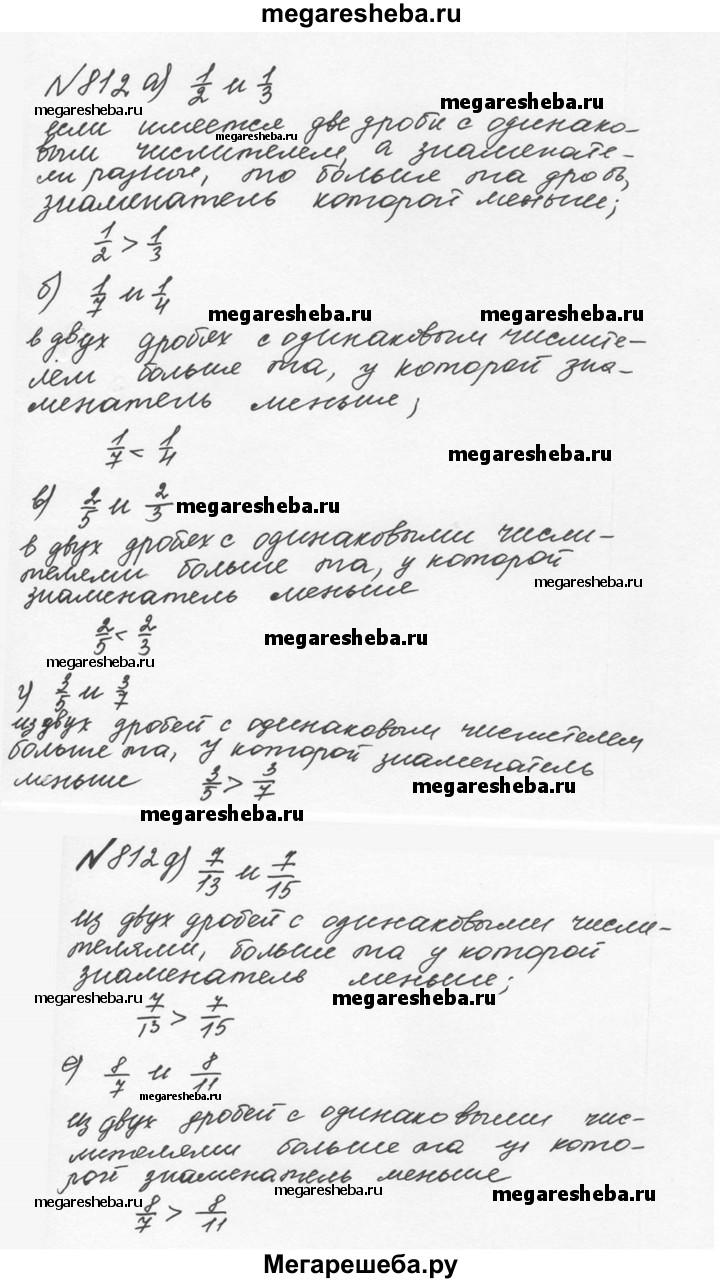 megaresheba.ru
№812 а) 1/2 и 1/3
megaresheba.ru
megaresheba.ru
если имеется две дроби с одинако-
megaresheba.ru
вым числителем, а знаменате-
ли разные, то больше та дробь,
знаменатель которой меньше;
1/2 > 1/3
б) 1/7 и 1/4
megaresheba.ru
megaresheba.ru
в двух дробях с одинаковым числите-
лем больше та, у которой зна-
менатель меньше;
1/7 < 1/4
megaresheba.ru
в) 2/5 и 2/3
megaresheba.ru
в двух дробях с одинаковыми числи-
телями больше та, у которой
megaresheba.ru
знаменатель меньше
2/5 < 2/3
megaresheba.ru
megaresheba.ru
г) 3/5 и 3/7
из двух дробей с одинаковым числителем
больше та, у которой знаменатель
меньше 3/5 > 3/7
megaresheba.ru
megaresheba.ru
№812 д) 7/13 и 7/15
из двух дробей с одинаковыми числи-
телями, больше та у которой
знаменатель меньше;
megaresheba.ru
megaresheba.ru
7/13 > 7/15
е) 8/7 и 8/11
megaresheba.ru
из двух дробей с одинаковыми чис-
лителями больше та у кото-
рой знаменатель меньше
megaresheba.ru
megaresheba.ru
megaresheba.ru
8/7 > 8/11
Мегарешеба.ру